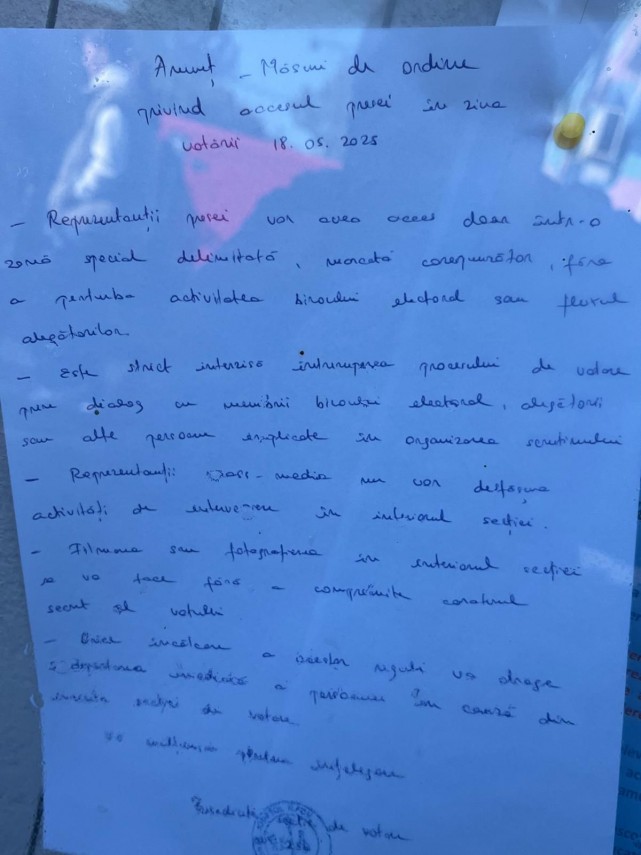 Anunț - Măsuri de ordine
privind accesul presei în ziua
votării 18.05.2025
- Reprezentanții presei vor avea acces doar într-o
zonă special delimitată, marcată corespunzător, fără
a perturba activitatea biroului electoral sau fluxul
alegătorilor.
- Este strict interzisă întreruperea procesului de votare
prin dialog cu membrii biroului electoral, alegătorii
sau alte persoane implicate în organizarea scrutinului
- Reprezentanții mass-media nu vor desfășura
activități de intervievare în interiorul secției.
- Filmarea sau fotografierea în interiorul secției
se va face fără a compromite caracterul
secret al votului
- Orice încălcare a acestor reguli va atrage
îndepărtarea imediată a persoanei în cauză din
incinta secției de votare
Vă mulțumim pentru înțelegere
secție de votare